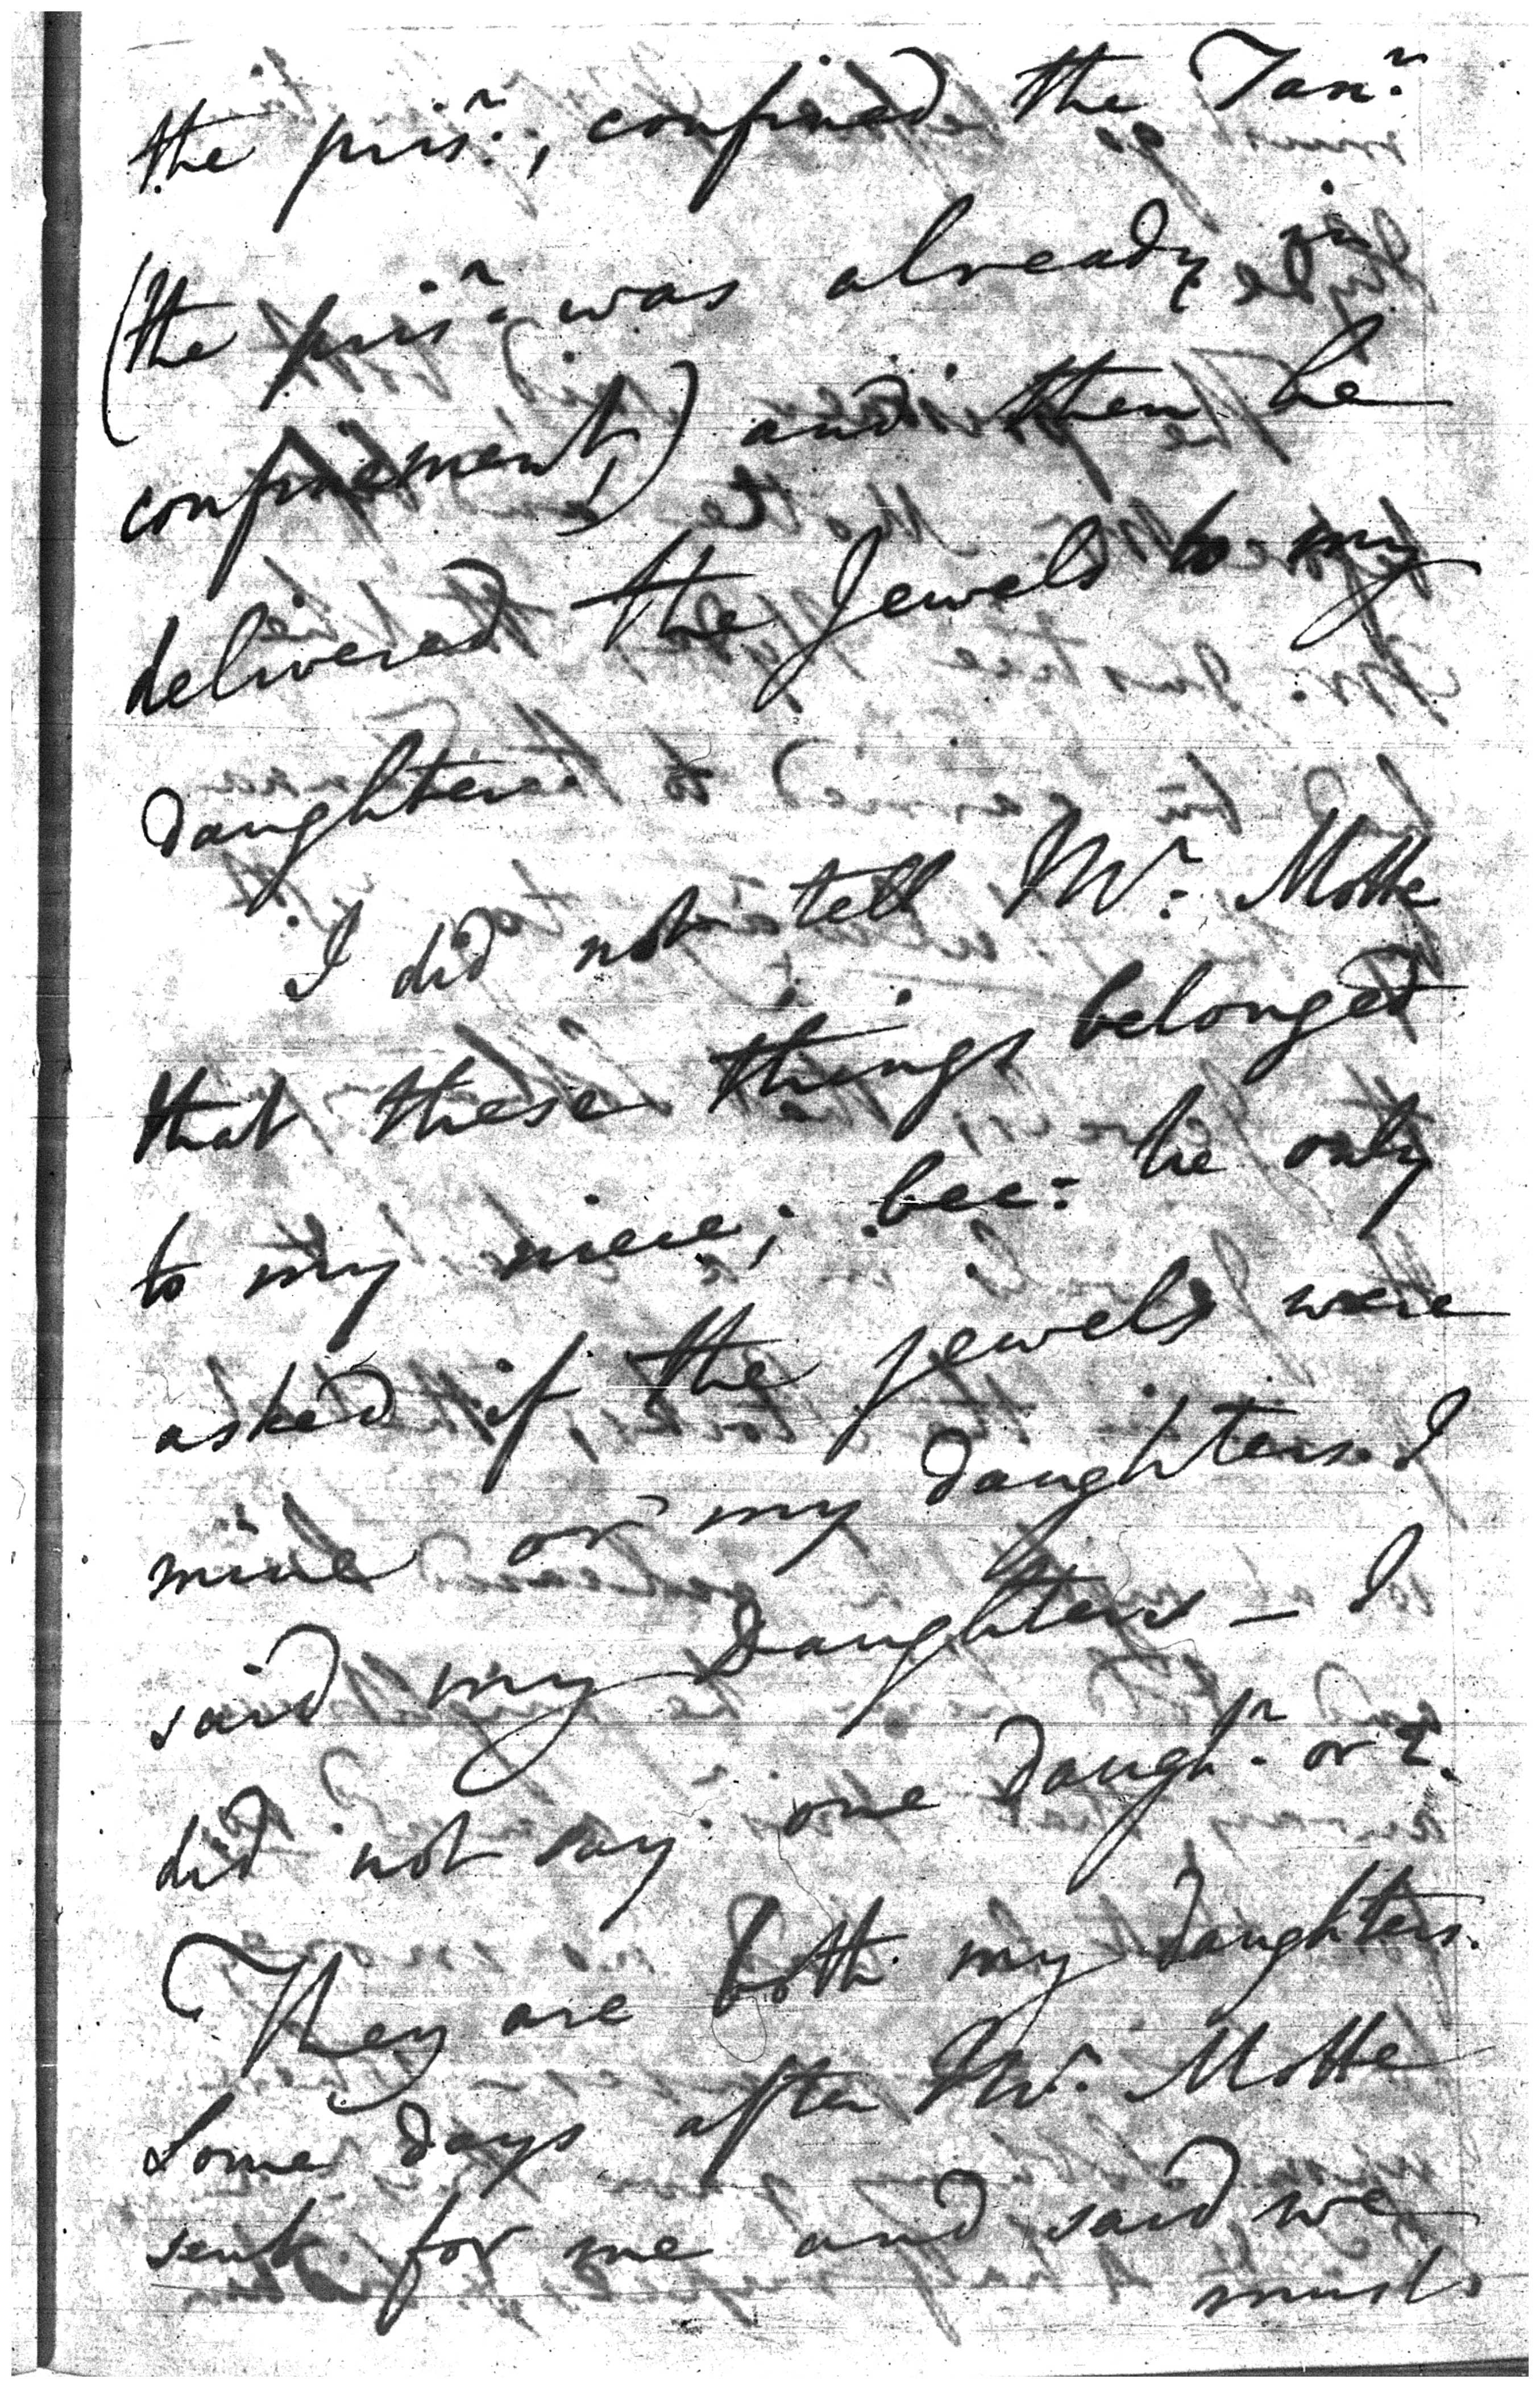 the pris.r, confined the Tan.r
(the pris.r was already in
confinement,) and then he
delivered the Jewels to my
daughters.
I did not tell Mr: Motte
that these things belonged
to my niece; bec: he only
asked if the jewels were
mine or my daughters. I
said my Daughters – I
did not say one daugh.r or 2.
They are both my daughters.
Some days after Mr. Motte
sent for me and said we
must